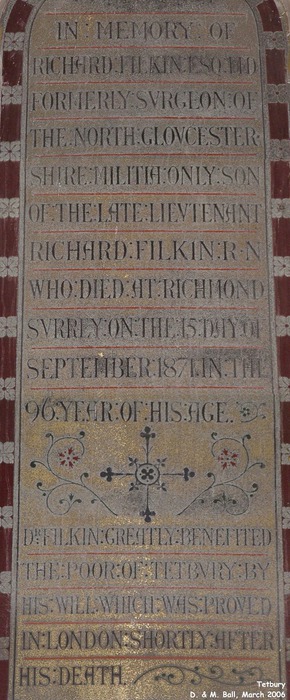 IN : MEMORY : OF
RICHARD : FILKIN : ESQ : M.D
FORMERLY : SVRGEON : OF
THE : NORTH : GLOVCESTER
SHIRE : MILITIA : ONLY : SON
OF : THE : LATE : LIEVTENANT
RICHARD : FILKIN : R : N
WHO : DIED : AT : RICHMOND
SVRREY : ON : THE : 15 : DAY : OF
SEPTEMBER : 1871 : IN : THE
96 : YEAR : OF : HIS : AGE .
DR : FILKIN : GREATLY : BENEFITED
THE : POOR : OF : TETBVRY : BY
HIS : WILL : WHICH : WAS : PROVED
IN : LONDON : SHORTLY : AFTER
HIS : DEATH .
Tetbury
D. & M. Ball, March 2006